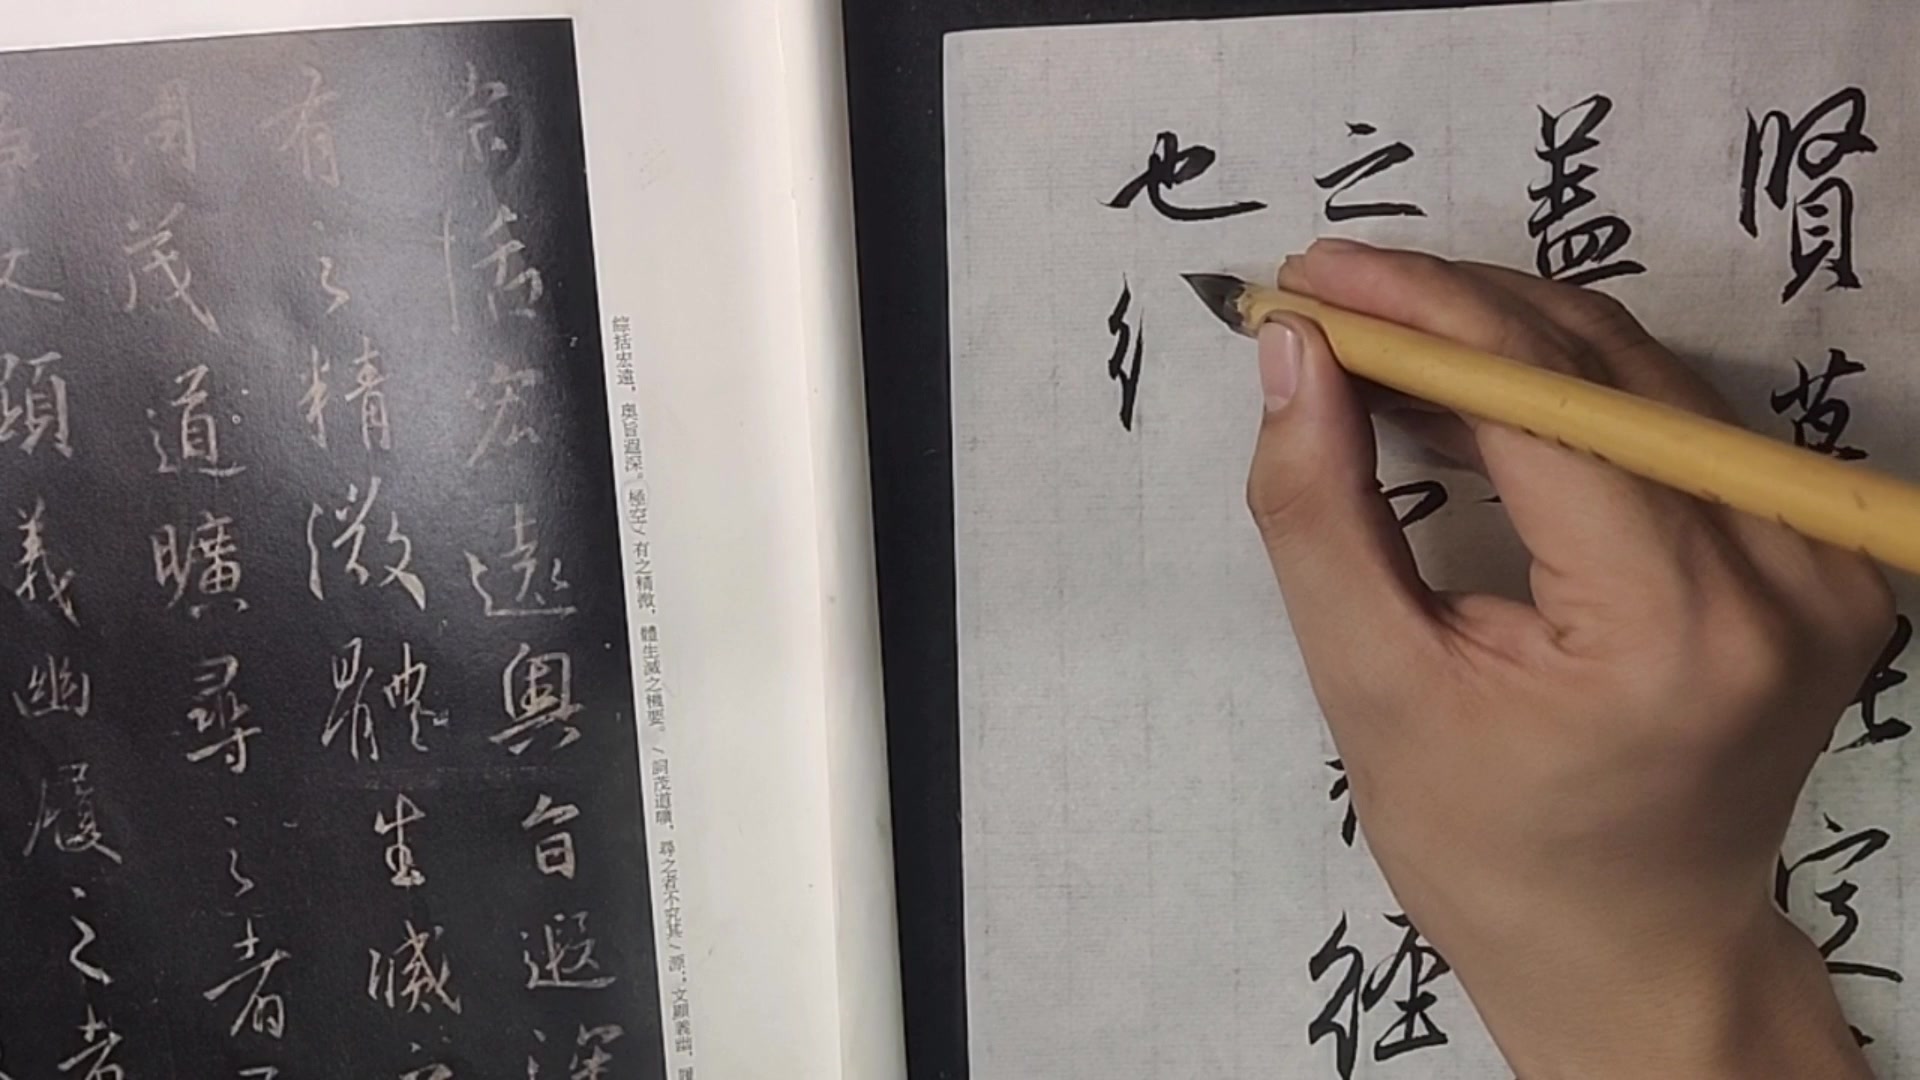 賢莫定
蓋
之經
也
綜括宏遠，奧旨遐深。極空/有之精微，體生滅之機要。/詞茂道曠，尋之者不究其/源；文顯義幽，履
綜括宏遠奧旨遐深
有之精微體生滅之
詞茂道曠尋之者不
文顯義幽履之者